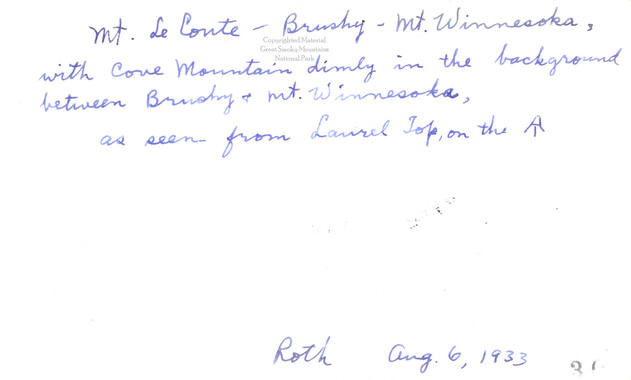 Mt. Le Conte – Brushy – Mt. Winnesoka,
Copyrighted Material
Great Smoky Mountains
National Park
with Cove Mountain dimly in the background
between Brushy & Mt. Winnesoka,
as seen from Laurel Top, on the AT
Roth Aug. 6, 1933